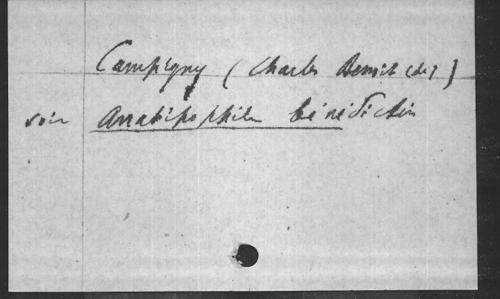 Campigny (Charles Benoit (de))
voir Anabiposphile bénédictin